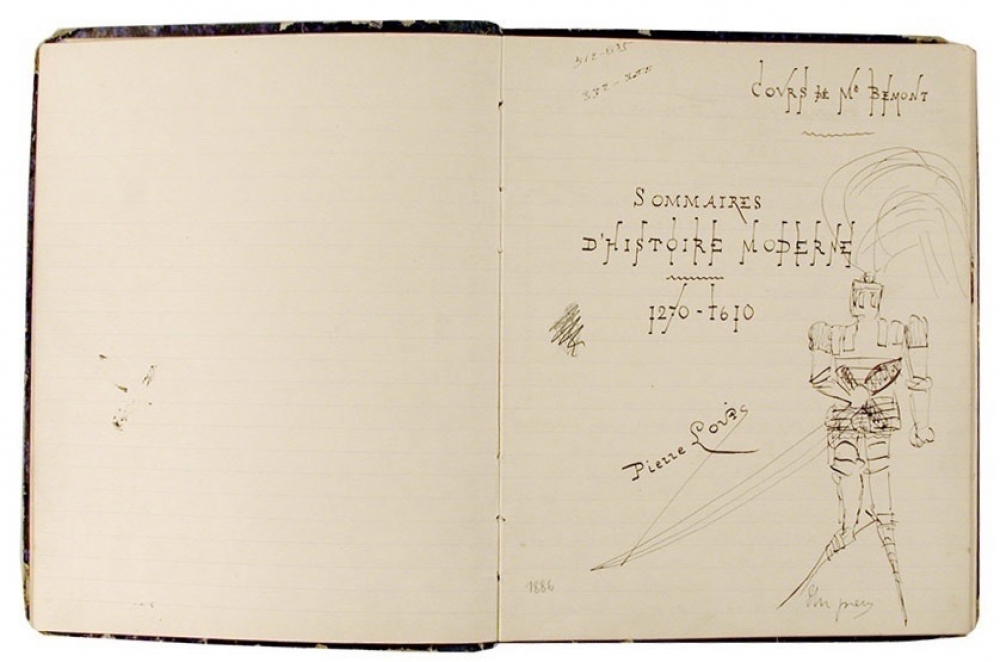 COVRS DE Mr BEMONT
SOMMAIRES
D'HISTOIRE MODERNE
1270-1610
Pierre Lovÿs
1886